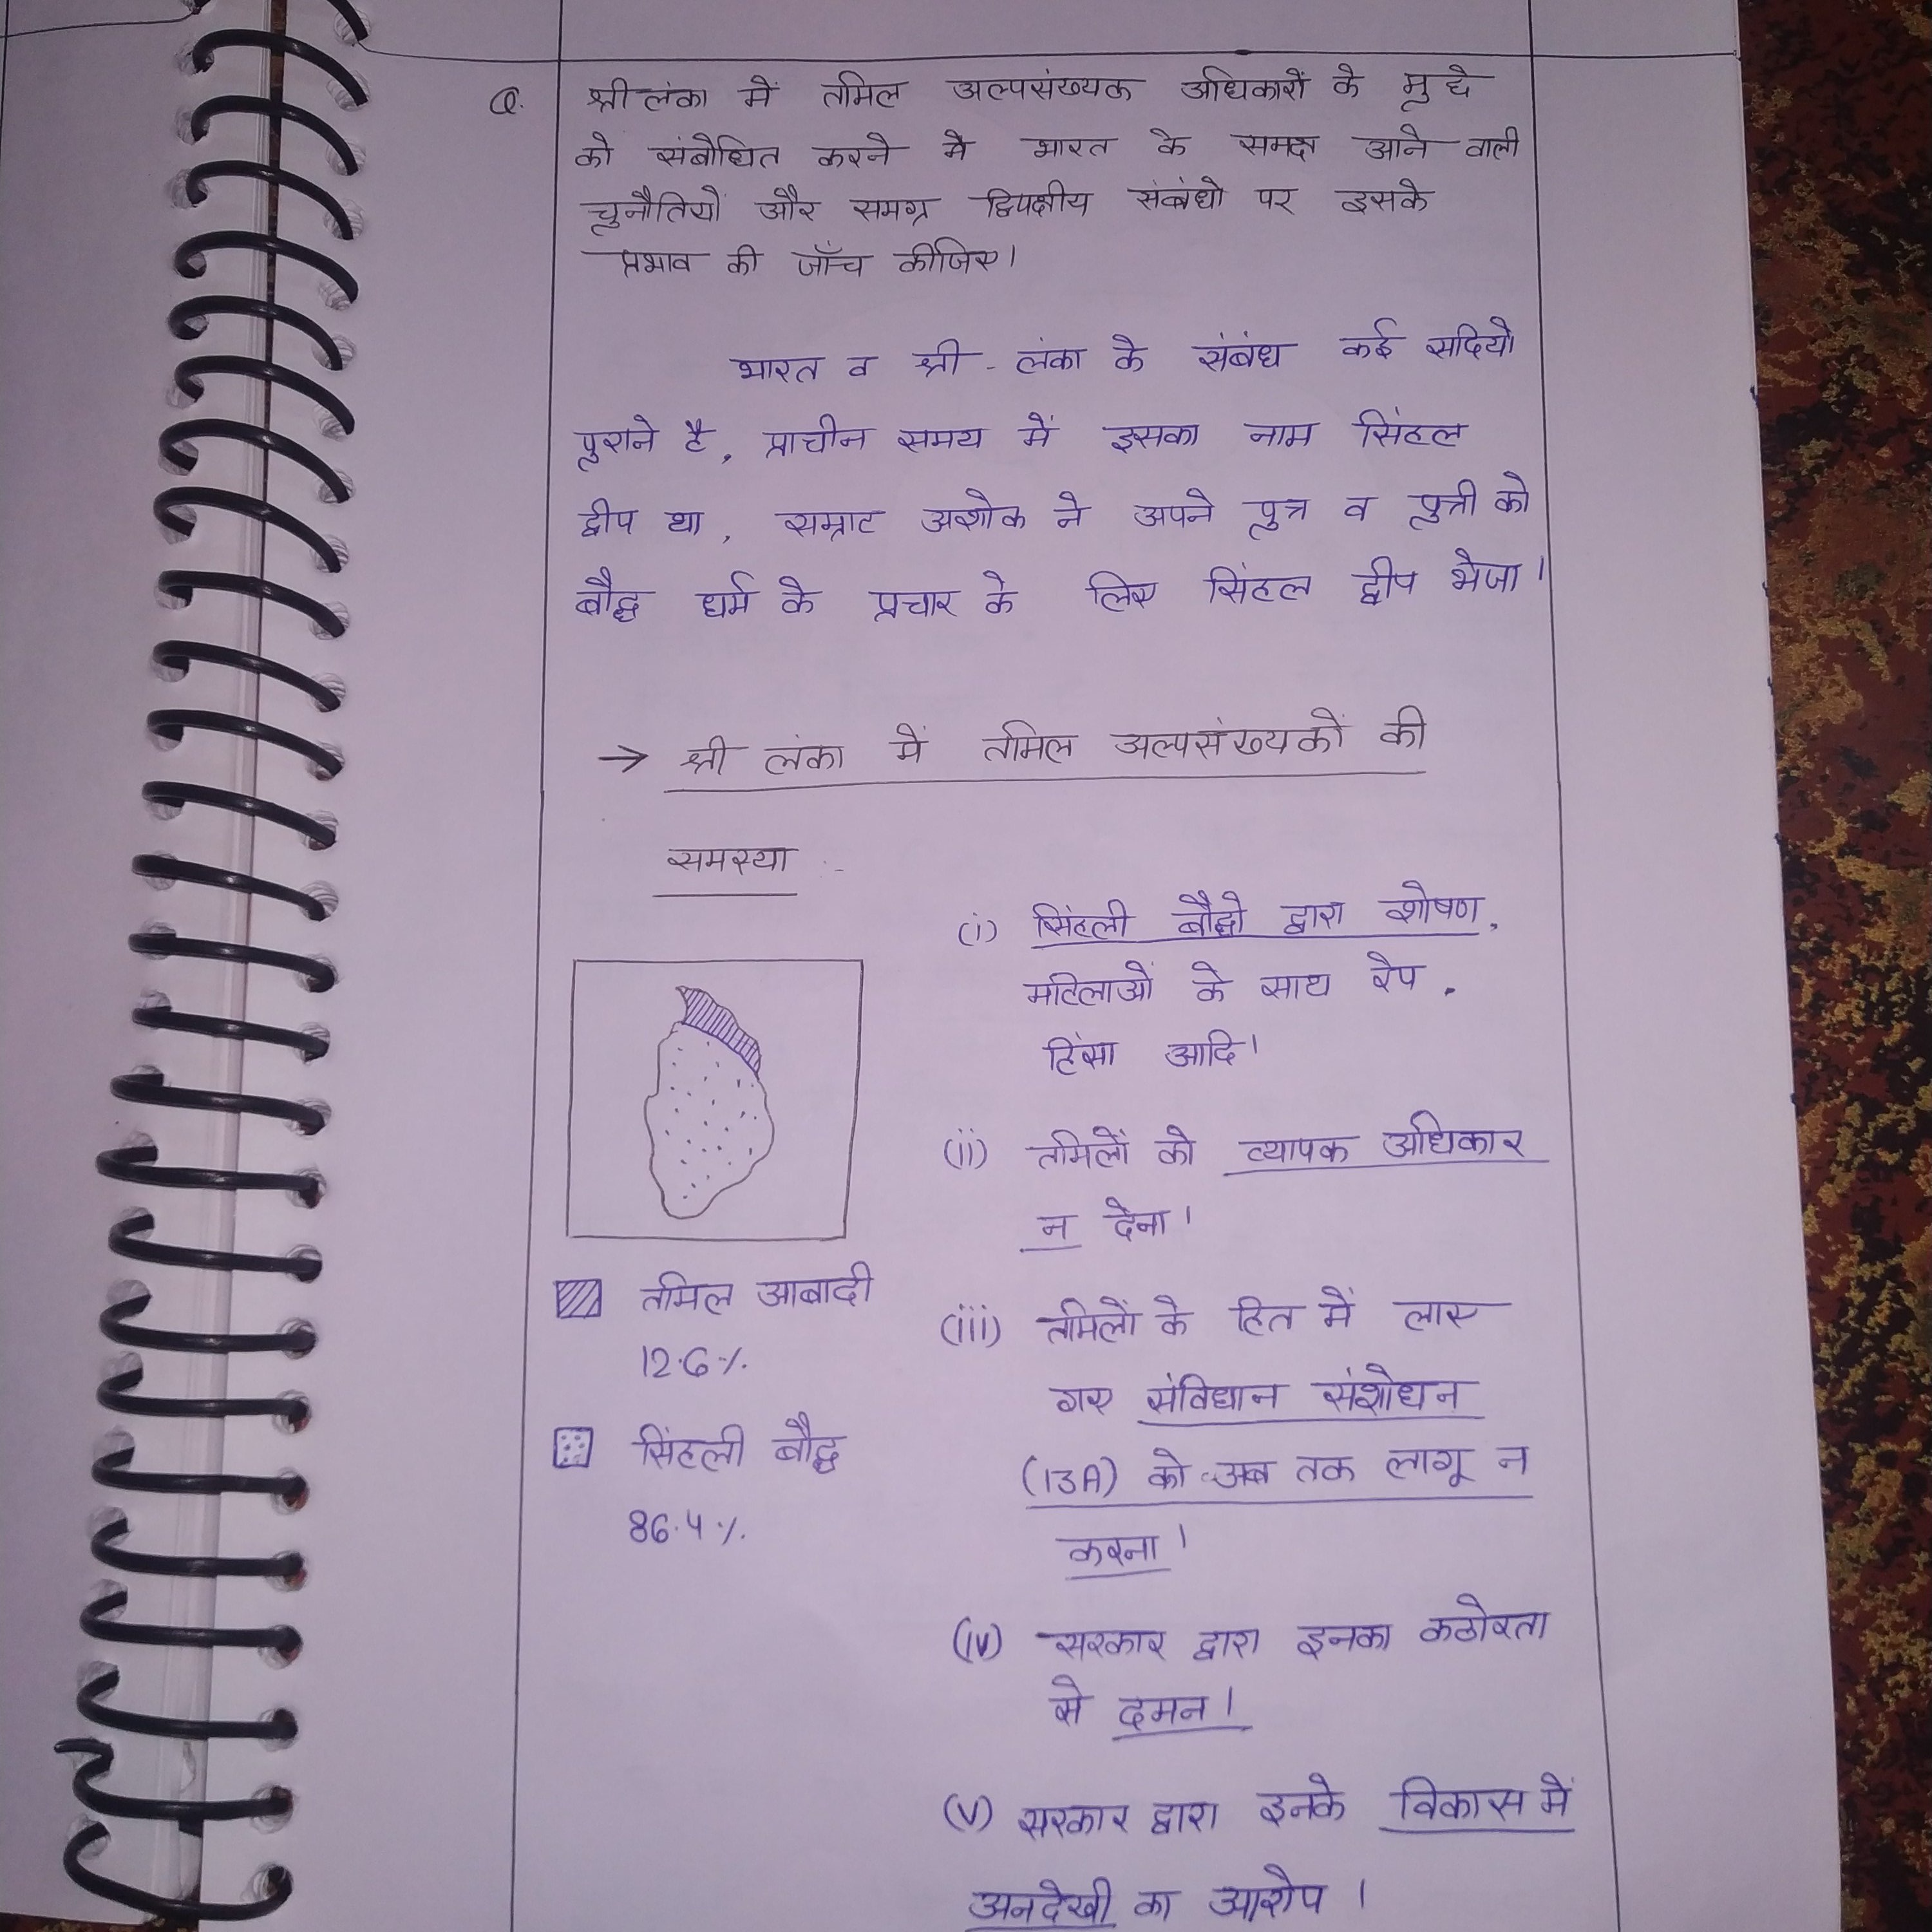 Q. श्री लंका में तमिल अल्पसंख्यक अधिकारों के मुद्दे
को संबोधित करने मे भारत के समक्ष आने वाली
चुनौतियों और समग्र द्विपक्षीय संबंधो पर इसके
प्रभाव की जाँच कीजिए।
भारत व श्री - लंका के संबंध कई सदियो
पुराने है, प्राचीन समय में इसका नाम सिंहल
द्वीप था, सम्राट अशोक ने अपने पुत्र व पुत्री को
बौद्ध धर्म के प्रचार के लिए सिंहल द्वीप भेजा।
→ श्री लंका में तमिल अल्पसंख्यकों की
समस्या :-
(i) सिंहली बौद्धो द्वारा शोषण,
महिलाओं के साथ रेप,
हिंसा आदि।
(ii) तमिलों को व्यापक अधिकार
न देना।
तमिल आबादी
12.6%
सिंहली बौद्ध
86.4%
(iii) तमिलों के हित में लाए
गए संविधान संशोधन
(13A) को अब तक लागू न
करना।
(iv) सरकार द्वारा इनका कठोरता
से दमन।
(v) सरकार द्वारा इनके विकास में
अनदेखी का आरोप।